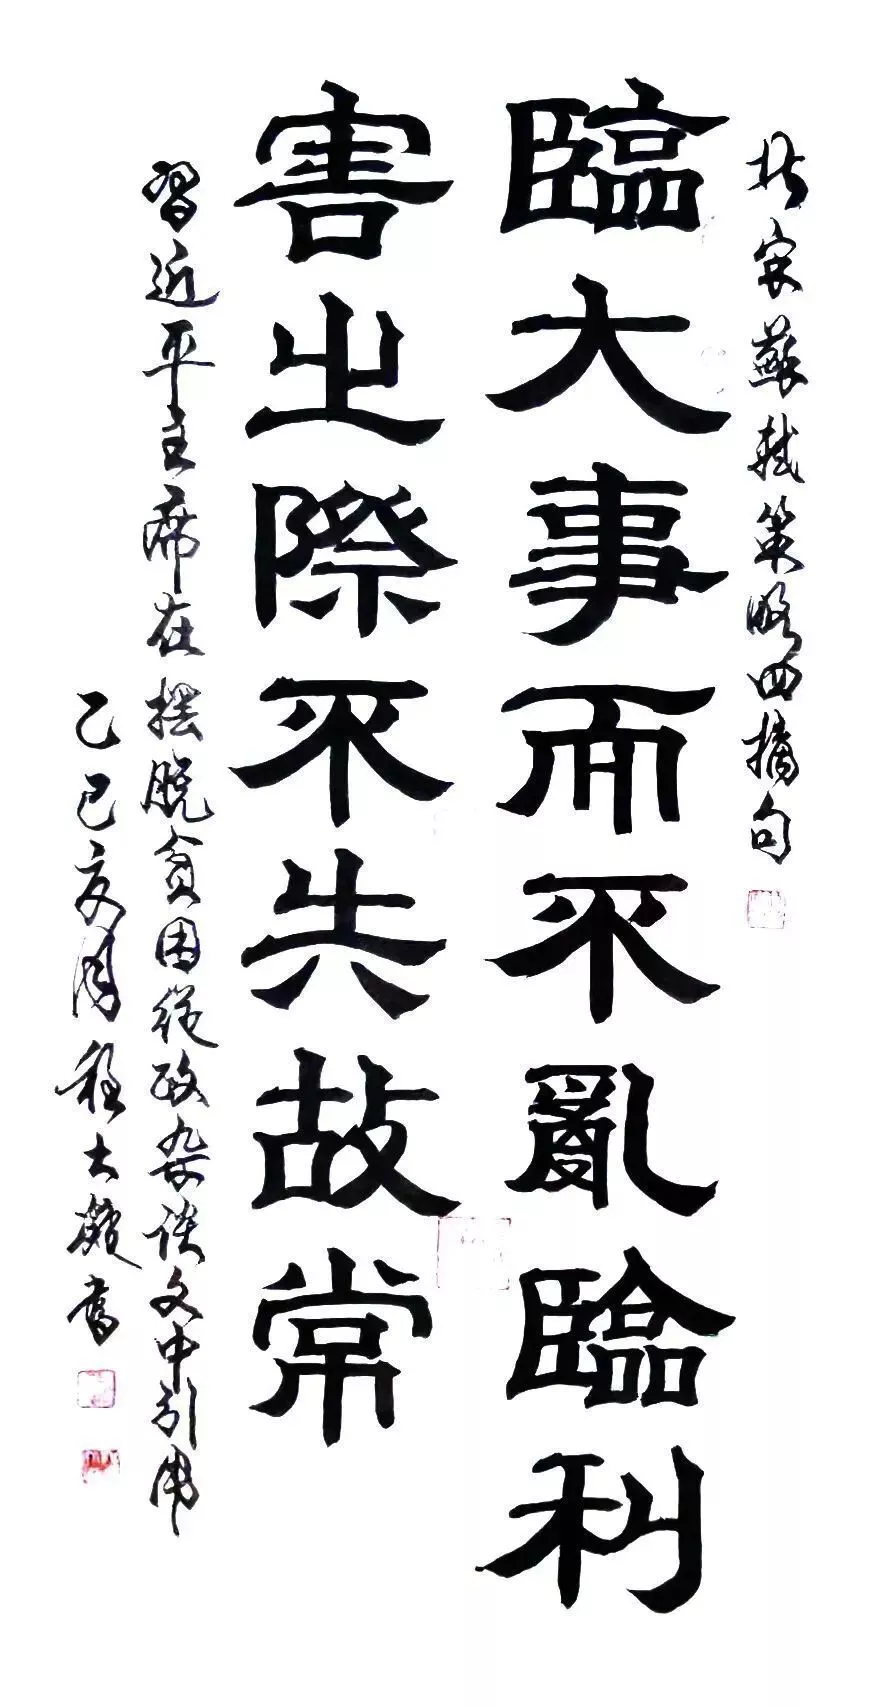 北宋蘇軾策略四摘句
臨大事而不亂臨利
害之際不失故常
習近平主席在摆脱貧困從政杂谈文中引用
乙巳亥月程大書